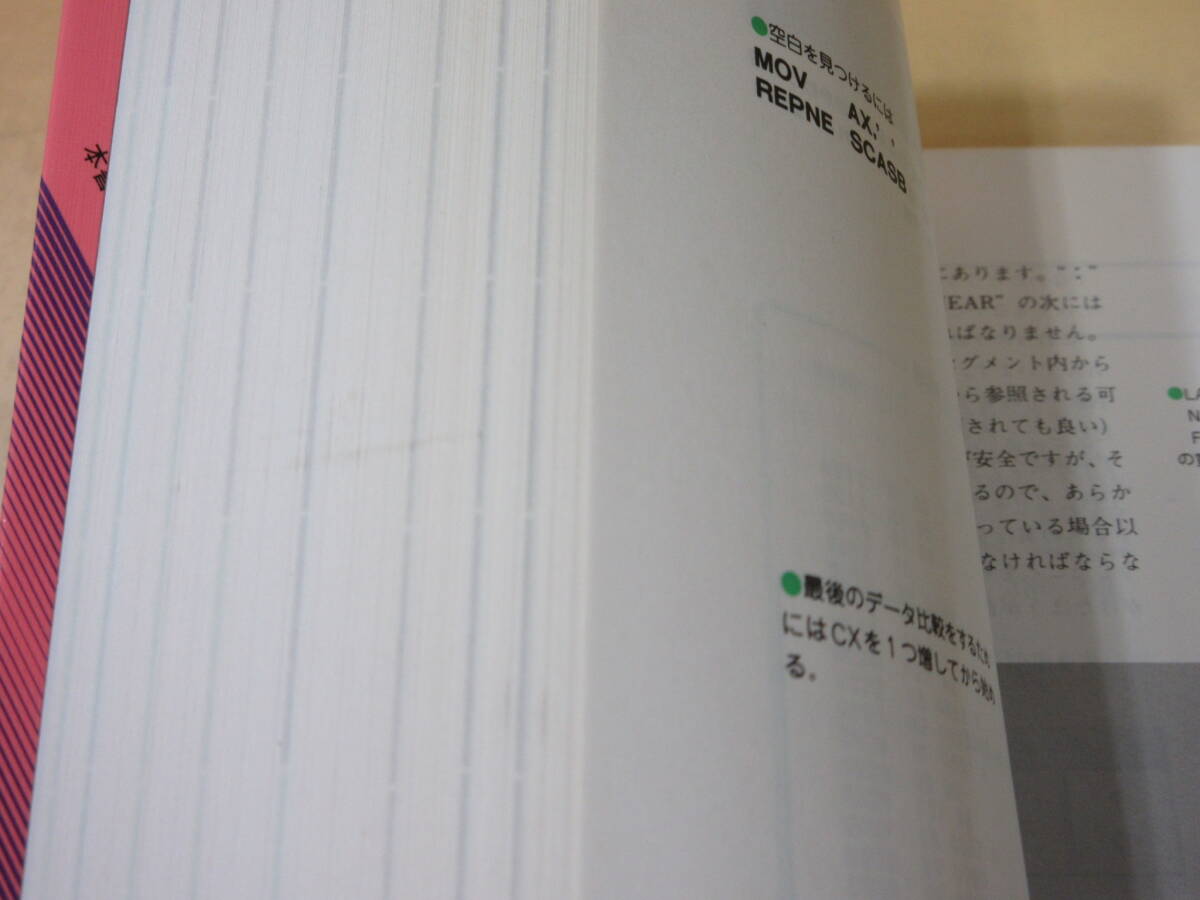 ●空白を見つけるには
MOV AX,' '
REPNE SCASB
●最後のデータ比較をするため
にはCXを1つ増してから始め
る.
にあります。":"
EAR" の次には
ればなりません。
グメント内から
ら参照される可
されても良い)
安全ですが、そ
るので、あらか
っている場合以
なければならな
●LA
N
F
の
本